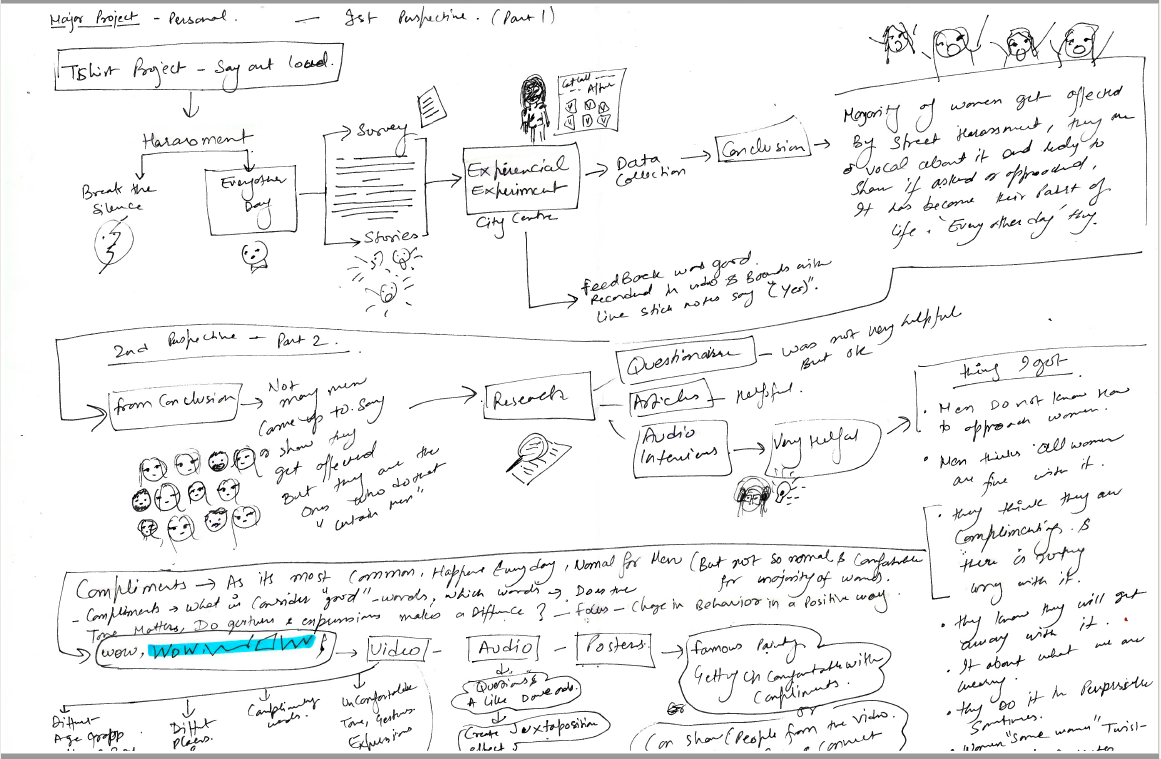 Major Project - Personal. — Ist Perspective. (Part 1)
TShirt Project - Say out loud.
Harassment
Break the
Silence
Everyother
Day
Survey
Stories
Cat Call
After
Experiencial
Experiment
City Centre
Data
Collection
Conclusion
Majority of women get affected
By Street Harassment, they are
vocal about it and ready to
share if asked or approached,
It has become their Part of
life. 'Every other day' they.
FeedBack was good.
Recorded in video & Boards with
Live stick notes say "(Yes)".
2nd Perspective - Part 2.
from Conclusion
Not
many men
came up to say
or show they
get affected
But they are the
Ones who do that
"certain men"
Research
Questionaire - was not very helpful
But ok
Articles - Helpful.
Audio
Interviews
Very Helpful
thing I got
• Men Do not know How
to approach women.
• Men thinks 'All women
are fine with it.
• they think they are
Complimenting. &
there is nothing
wrong with it.
• they know they will get
away with it.
• It about what we are
wearing.
• they Do it in
Sometimes.
• Women "Some women" Twist-
Compliments → As its most Common, Happens Everyday, Normal for Men (But not so normal & Comfortable
for majority of women.
- Compliments → what is Consider "good" - words, which words → Does the
Tone Matters, Do gesture & expressions makes a Diffence ? - focus - Change in Behavior in a Positive way.
wow, WOW
Video - Audio - Posters
Diffrent
Age Group
Diffrent
Places.
Complimentary
words.
UnComfortable
Tone, Gesture
Expressions
Questions &
A like Dove ads.
Create Juxtaposition
effect
famous Painting
Getting UnComfortable with
Compliments.
or
Can show (People from the video.
& Connect